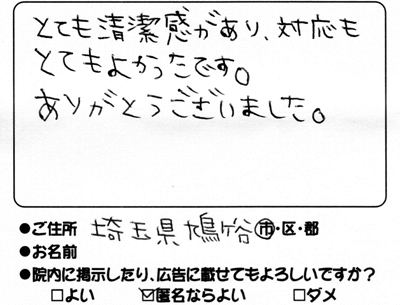 とても清潔感があり、対応も
とてもよかったです。
ありがとうございました。
●ご住所 埼玉県鳩ヶ谷市・区・郡
●お名前
●院内に掲示したり、広告に載せてもよろしいですか?
□よい ☑匿名ならよい □ダメ